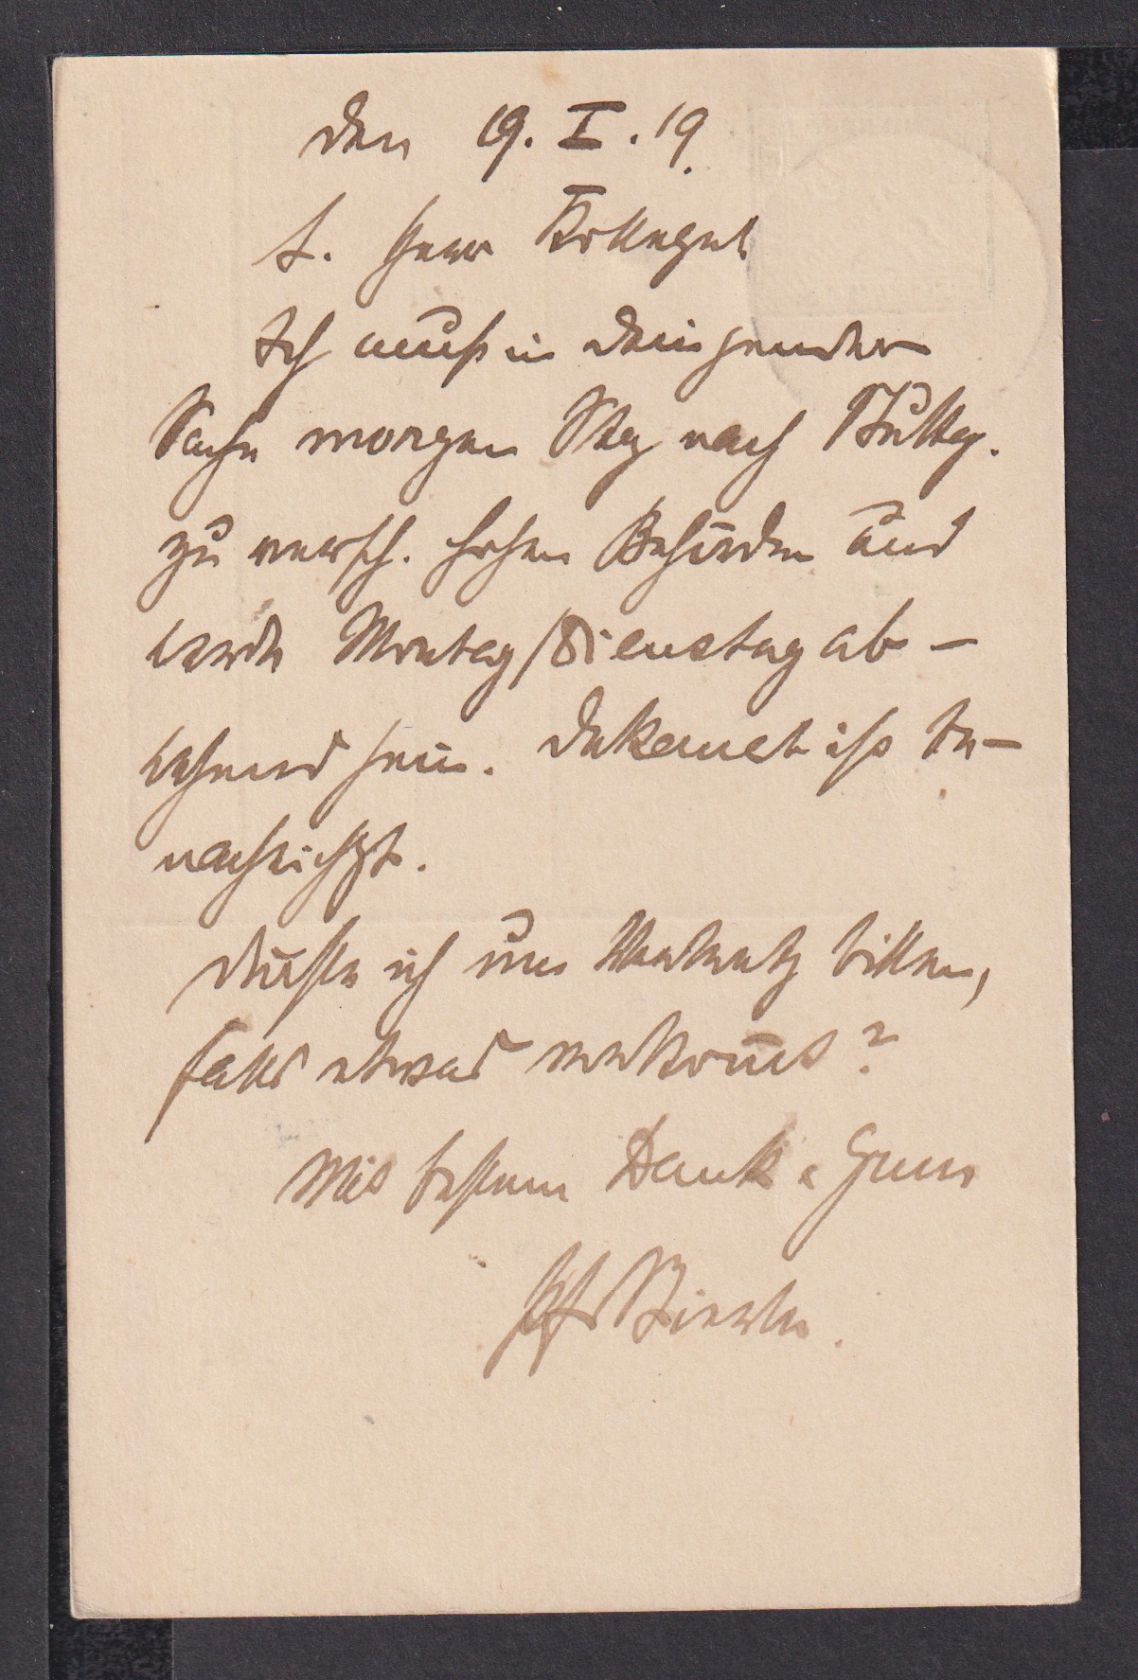 den 19. I. 19.
L. Herr Kollege!
Ich muß in dringender
Sache morgen Stg nach Stuttg.
zu versch. hohen Behörden und
werde Montag/Dienstag ab-
wesend sein. Dekanat ist be-
nachrichtigt.
Dürfte ich um bitten,
falls etwas vorkommt?
Mit bestem Dank u. Gruss